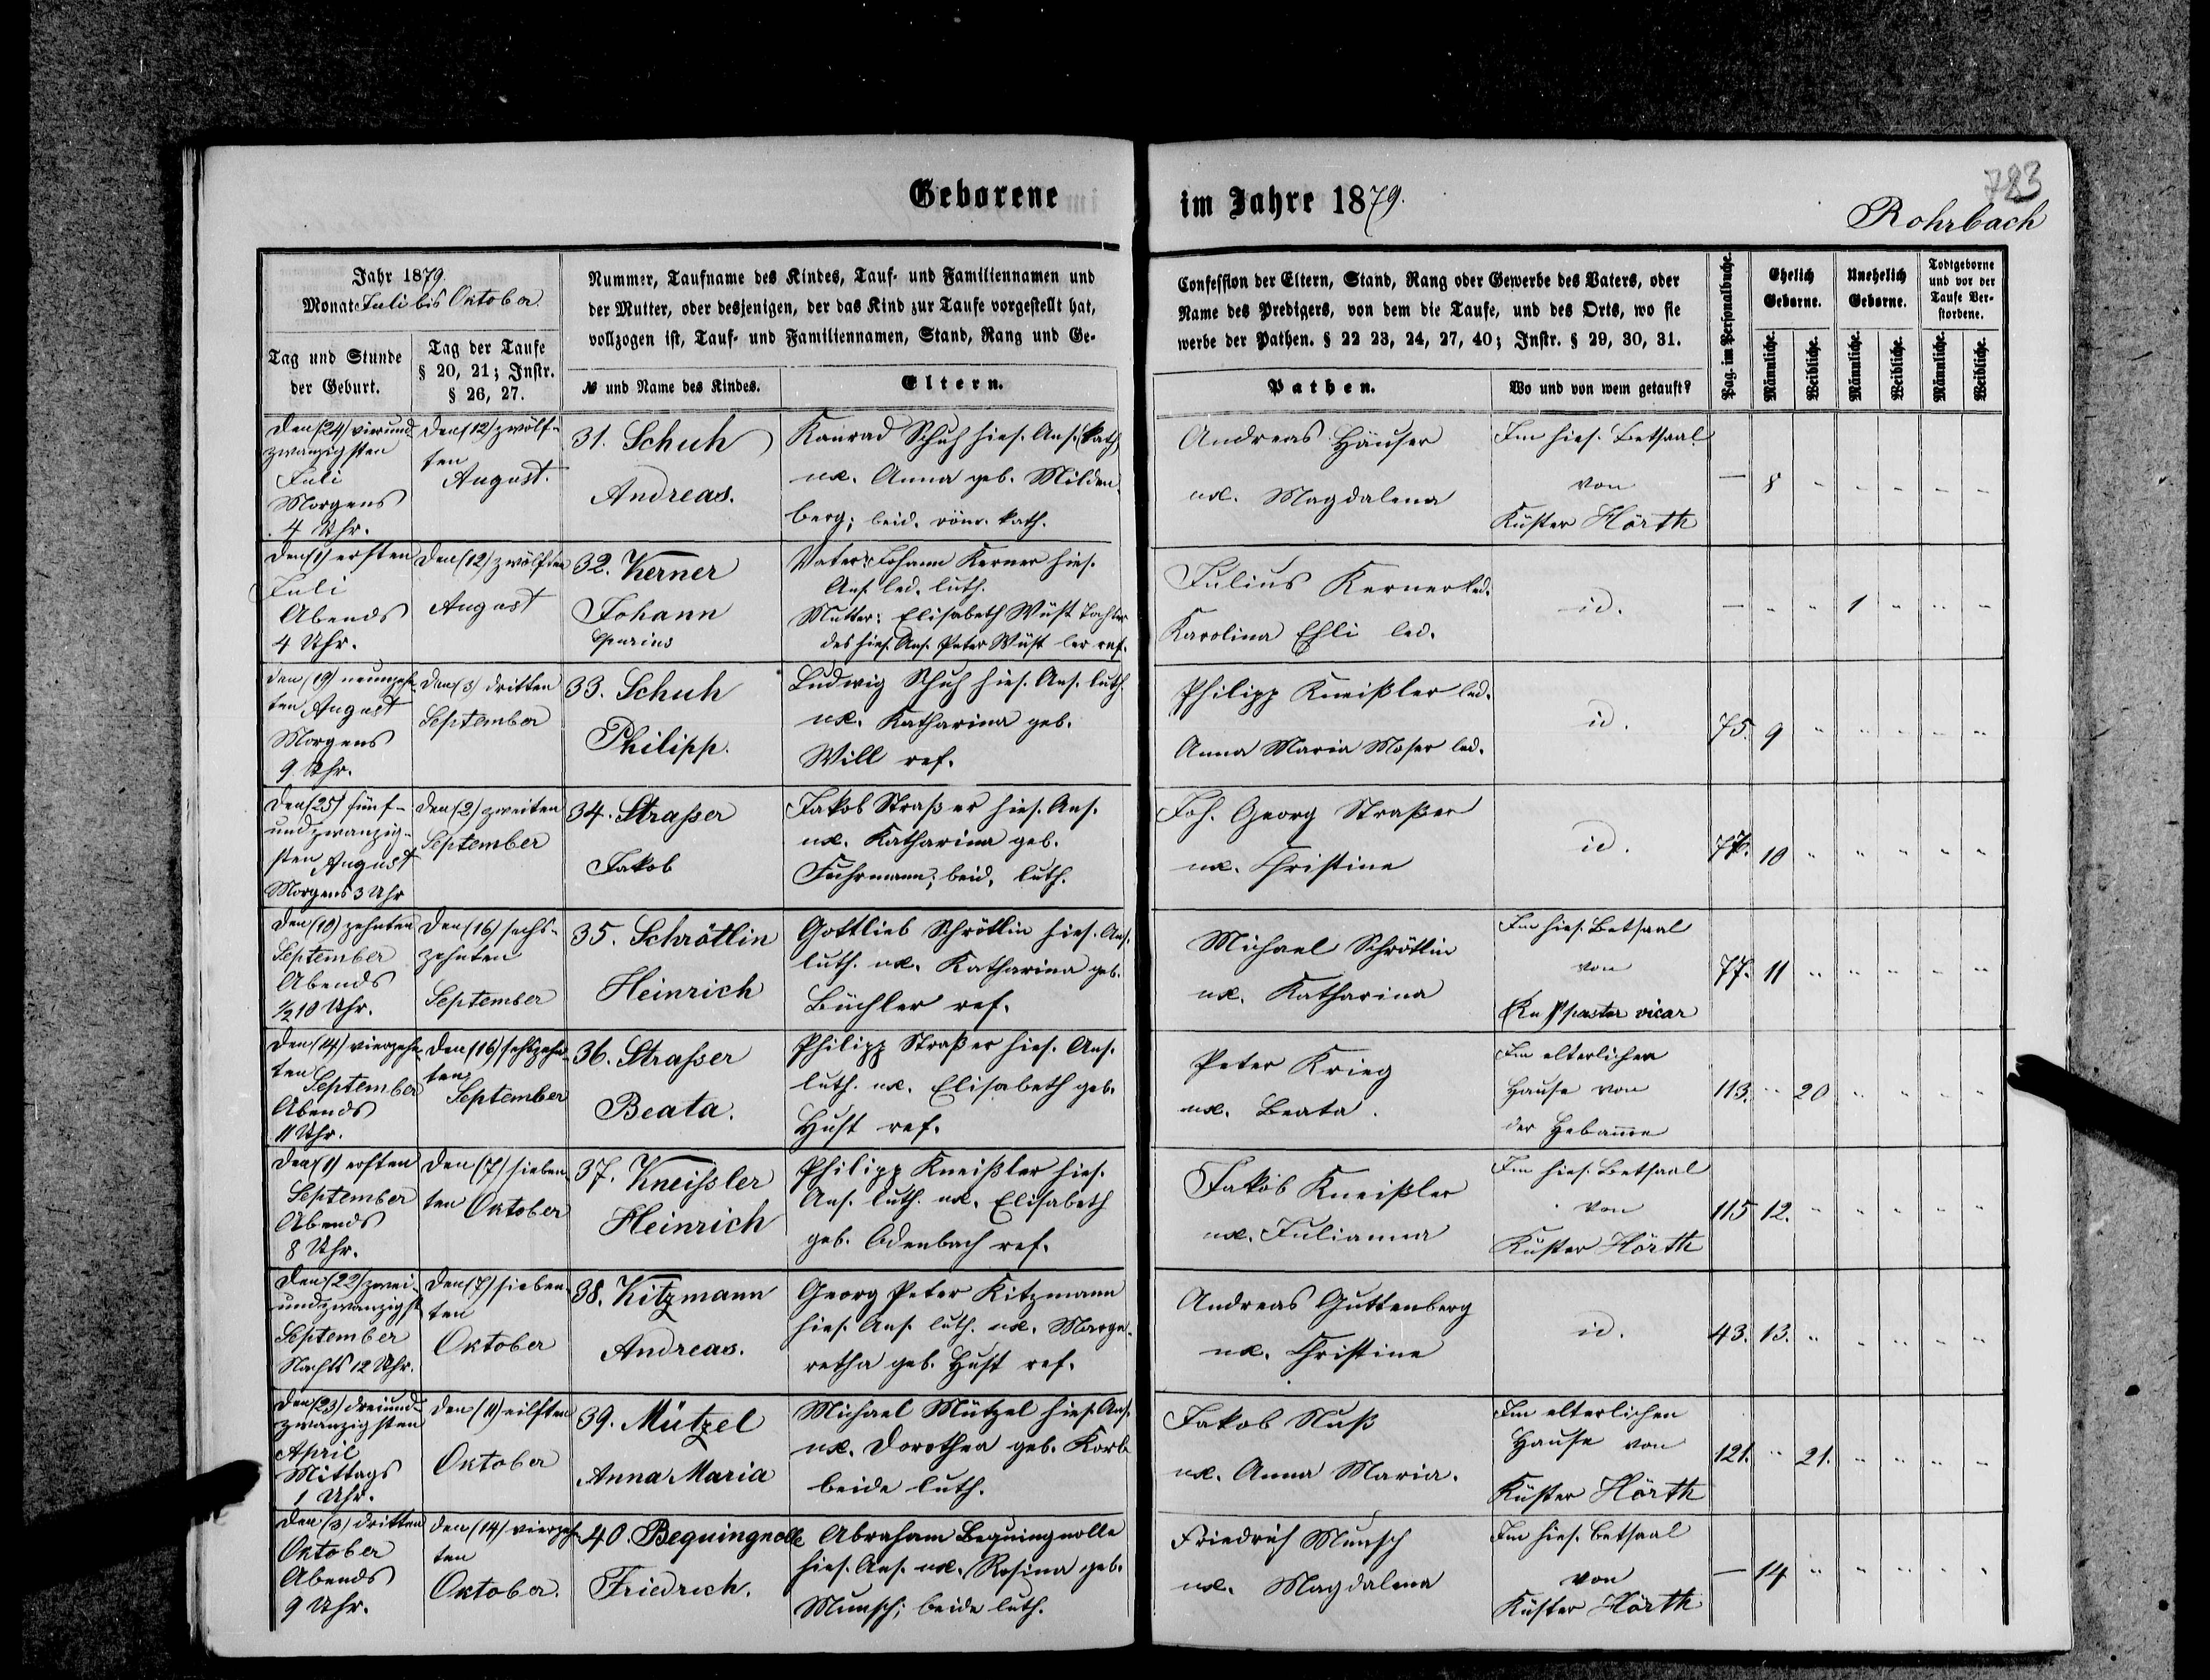 Geborene im Jahre 1879.
783
Rohrbach
Jahr 1879.
Monat Juli bis Oktober
Tag und Stunde
der Geburt.
Tag der Taufe
§ 20, 21; Instr.
§ 26, 27.
Nummer, Taufname des Kindes, Tauf- und Familiennamen und
der Mutter, oder desjenigen, der das Kind zur Taufe vorgestellt hat,
vollzogen ist, Tauf- und Familiennamen, Stand, Rang und Ge-
№ und Name des Kindes.
Eltern.
Confession der Eltern, Stand, Rang oder Gewerbe des Vaters, oder
Name des Predigers, von dem die Taufe, und des Orts, wo sie
werbe der Pathen. § 22 23, 24, 27, 40; Instr. § 29, 30, 31.
Pathen.
Wo und von wem getauft?
Pag. im Personalbuche.
Ehelich
Geborne.
Unehelich
Geborne.
Todtgeborne
und vor der
Taufe Ver-
storbene.
Männliche.
Weibliche.
Männliche.
Weibliche.
Männliche.
Weibliche.
Den (24) vierund
zwanzigsten
Juli
Morgens
4 Uhr.
Den (12) zwölf-
ten
August.
31. Schuh
Andreas.
Konrad Schuh hies. Ans. (kath)
ux. Anna geb. Milden-
berg; beid. röm. kath.
Andreas Häuser
ux. Magdalena
Im hies. Betsaal
von
Küster Hörth
— 8 " " " " "
Den (1) ersten
Juli
Abends
4 Uhr.
Den (12) zwölften
August
32. Kerner
Johann
spurius
Vater: Johann Kerner hies.
Ans. led. luth.
Mutter: Elisabeth Wüst Tochter
des hies. Ans. Peter Wüst ref.
Julius Kerner led.
Karolina Ehli led.
id.
— " " 1 " " "
Den (19) neunzehn-
ten August
Morgens
9 Uhr.
Den (3) dritten
September
33. Schuh
Philipp.
Ludwig Schuh hies. Ans. luth.
ux. Katharina geb.
Will ref.
Philipp Kneißler led.
Anna Maria Moser led.
id.
75 9 " " " " "
Den (25) fünf-
undzwanzig-
sten August
Morgens 3 Uhr
Den (2) zweiten
September
34. Strasser
Jakob
Jakob Straßer hies. Ans.
ux. Katharina geb.
Fuhrmann; beid. luth.
Joh. Georg Straßer
ux. Christine
id.
10 " " " " "
Den (10) zehnten
September
Abends
½10 Uhr.
Den (16) sechs-
zehnten
September
35. Schrötlin
Heinrich
Gottlieb Schrötlin hies. Ans.
luth. ux. Katharina geb.
Büchler ref.
Michael Schrötlin
ux. Katharina
Im hies. Betsaal
von
pastor vicar
77. 11 " " " " "
Den (14) vierzehn-
ten
September
Abends
11 Uhr.
Den (16) sechszehn-
ten
September
36. Strasser
Beata.
Philipp Straßer hies. Ans.
luth. ux. Elisabeth geb.
Hust ref.
Peter Krieg
ux. Beata.
Im elterlichen
Hause von
der Hebamme
113. " 20 " " " "
Den (1) ersten
September
Abends
8 Uhr.
Den (7) sieben-
ten Oktober
37. Kneissler
Heinrich
Philipp Kneißler hies.
Ans. luth. ux. Elisabeth
geb. Odenbach ref.
Jakob Kneißler
ux. Julianna
Im hies. Betsaal
von
Küster Hörth
115 12. " " " " "
Den (22) zwei-
undzwanzigst
September
Nachts 12 Uhr.
Den (7) sieben-
ten
Oktober
38. Kitzmann
Andreas.
Georg Peter Kitzmann
hies. Ans. luth. ux. Marga-
retha geb. Hust ref.
Andreas Guttenberg
ux. Christine
id.
43. 13. " " " " "
Den (23) dreiund-
zwanzigsten
April
Mittags
1 Uhr.
Den (11) eilften
Oktober
39. Mützel
Anna Maria
Michael Mützel hies. Ans.
ux. Dorothea geb. Korb
beide luth.
Jakob Nuß
ux. Anna Maria.
Im elterlichen
Hause von
Küster Hörth
121. " 21. " " " "
Den (3) dritten
Oktober
Abends
9 Uhr.
Den (14) vierzehn-
ten
Oktober.
40. Bequingnolle
Friedrich.
Abraham Bequingnolle
hies. Ans. ux. Rosina geb.
Munsch; beide luth.
Friedrich Munsch
ux. Magdalena
Im hies. Betsaal
von
Küster Hörth
— 14 " " " " "